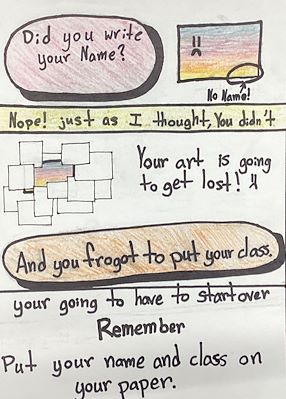 Did you write
your Name?
No Name!
Nope! just as I thought, You didn't
Your art is going
to get lost!
And you frogot to put your class.
your going to have to startover
Remember
Put your name and class on
your paper.